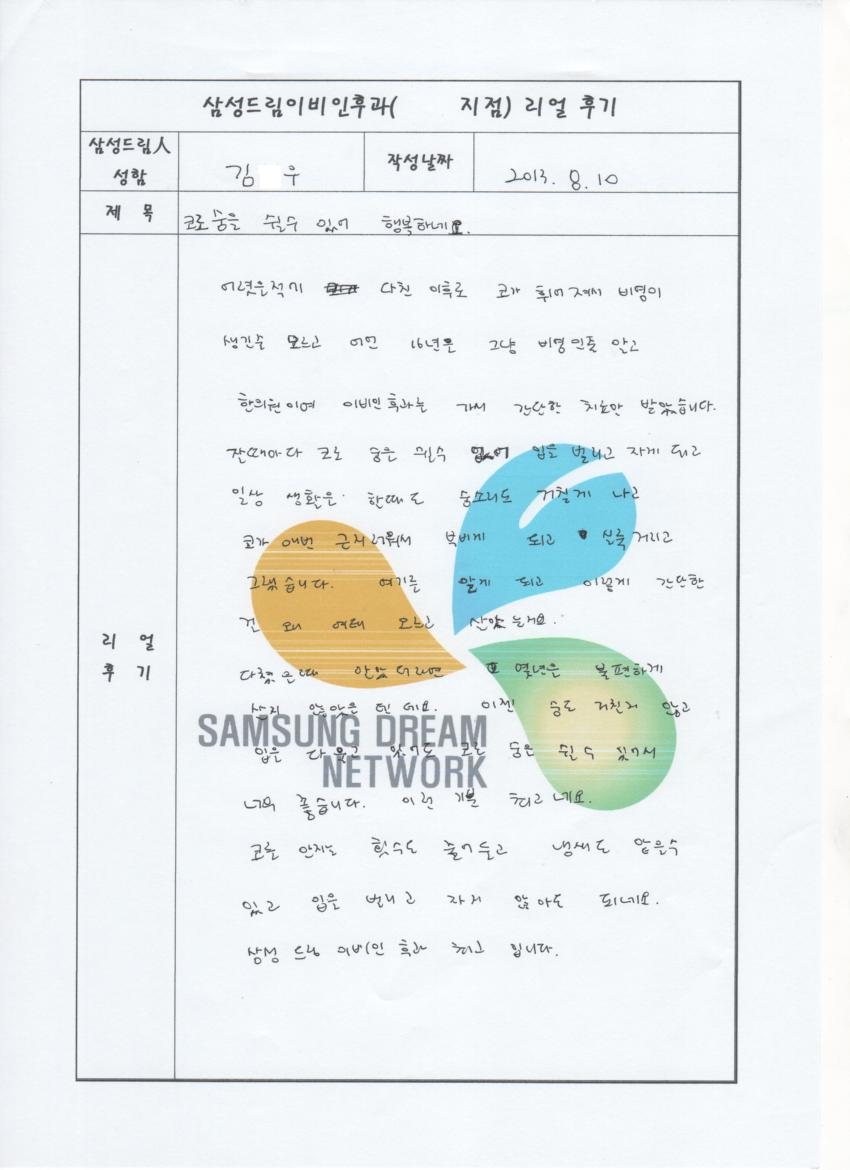 삼성드림이비인후과(      지점) 리얼 후기
삼성드림人 성함
김 우
작성날짜
2013. 8. 10
제 목
코로 숨을 쉴수 있어 행복하네요.
리 얼 후 기
어렷을적에 다친 이후로 코가 휘어져서 비염이
생긴줄 모르고 어언 16년을 그냥 비염인줄 알고
한의원이며 이비인후과를 가서 간단한 치료만 받았습니다.
잘때마다 코로 숨을 쉴수 없어 입을 벌리고 자게 되고
일상 생활은 할때도 숨소리도 거칠게 나고
코가 매번 근지러워서 부비게 되고 실룩거리고
그랬습니다. 여기를 알게 되고 이렇게 간단한
건 왜 여태 모르고 살았는지요.
다쳤을때 알았더라면 몇년을 불편하게
살지 않았을 텐데요. 이젠 숨도 거칠지 않고
입을 다물고 있어도 코로 숨을 쉴 수 있어서
너무 좋습니다. 이런 기분 최고네요.
코를 만지는 횟수도 줄어들고 냄새도 맡을수
있고 입을 벌리고 자지 않아도 되네요.
삼성 드림 이비인후과 최고 입니다.
SAMSUNG DREAM
NETWORK